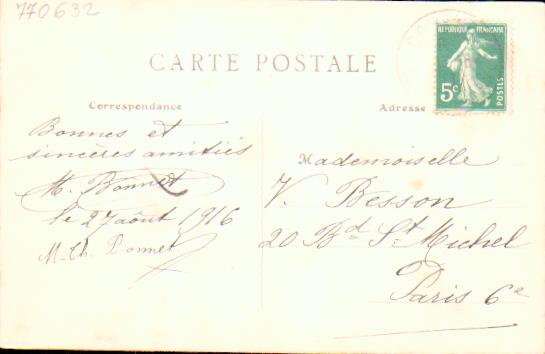 770632
CARTE POSTALE
REPUBLIQUE FRANÇAISE
5c
POSTES
Correspondance
Adresse
Bonnes et
sincères amitiés
M. Bonnet
le 27 août 1916
M. Th. Bonnet
Mademoiselle
V. Besson
20 Bd St Michel
Paris 6e